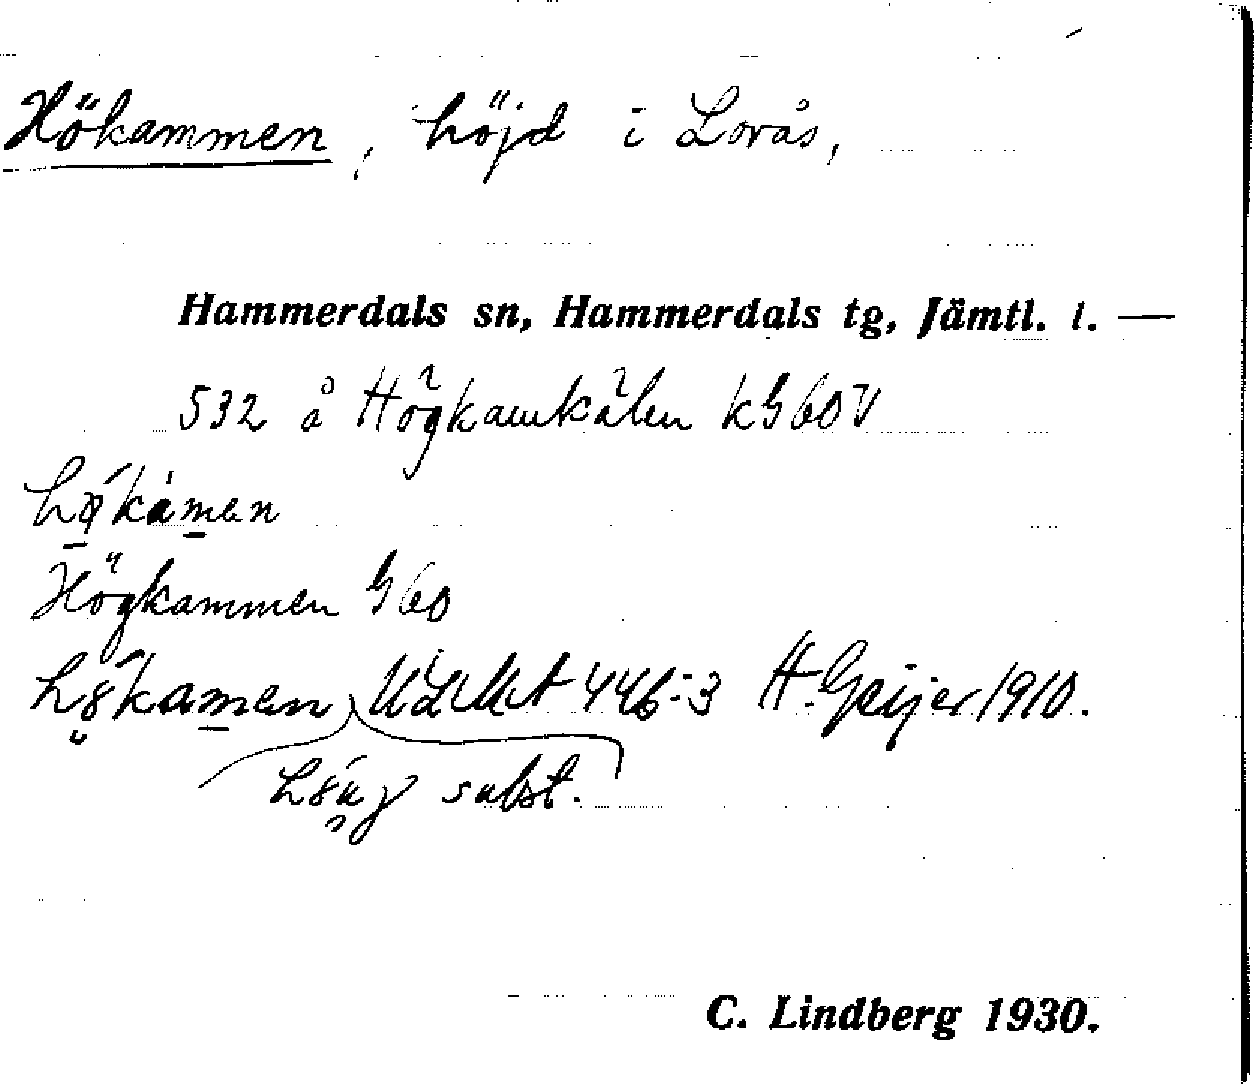 Hökammen, höjd i Lorås,
Hammerdals sn, Hammerdals tg, Jämtl. l. —
532 å Högkamkälen kG60V
hǿkàmen
Högkammen G60
hökamen, ULMA 446:3 H. Geijer 1910.
subst.
C. Lindberg 1930.